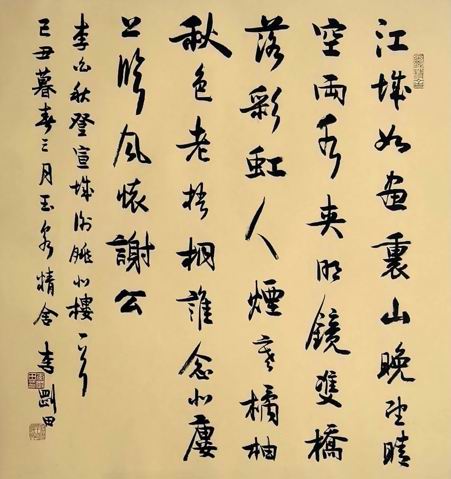 江城如畫裏山晚望晴
空兩水夾明鏡雙橋
落彩虹人煙寒橘柚
秋色老梧桐誰念北樓
上臨風懷謝公
李白秋登宣城謝脁北樓一首
己丑暮春三月玉泉精舍李剛田